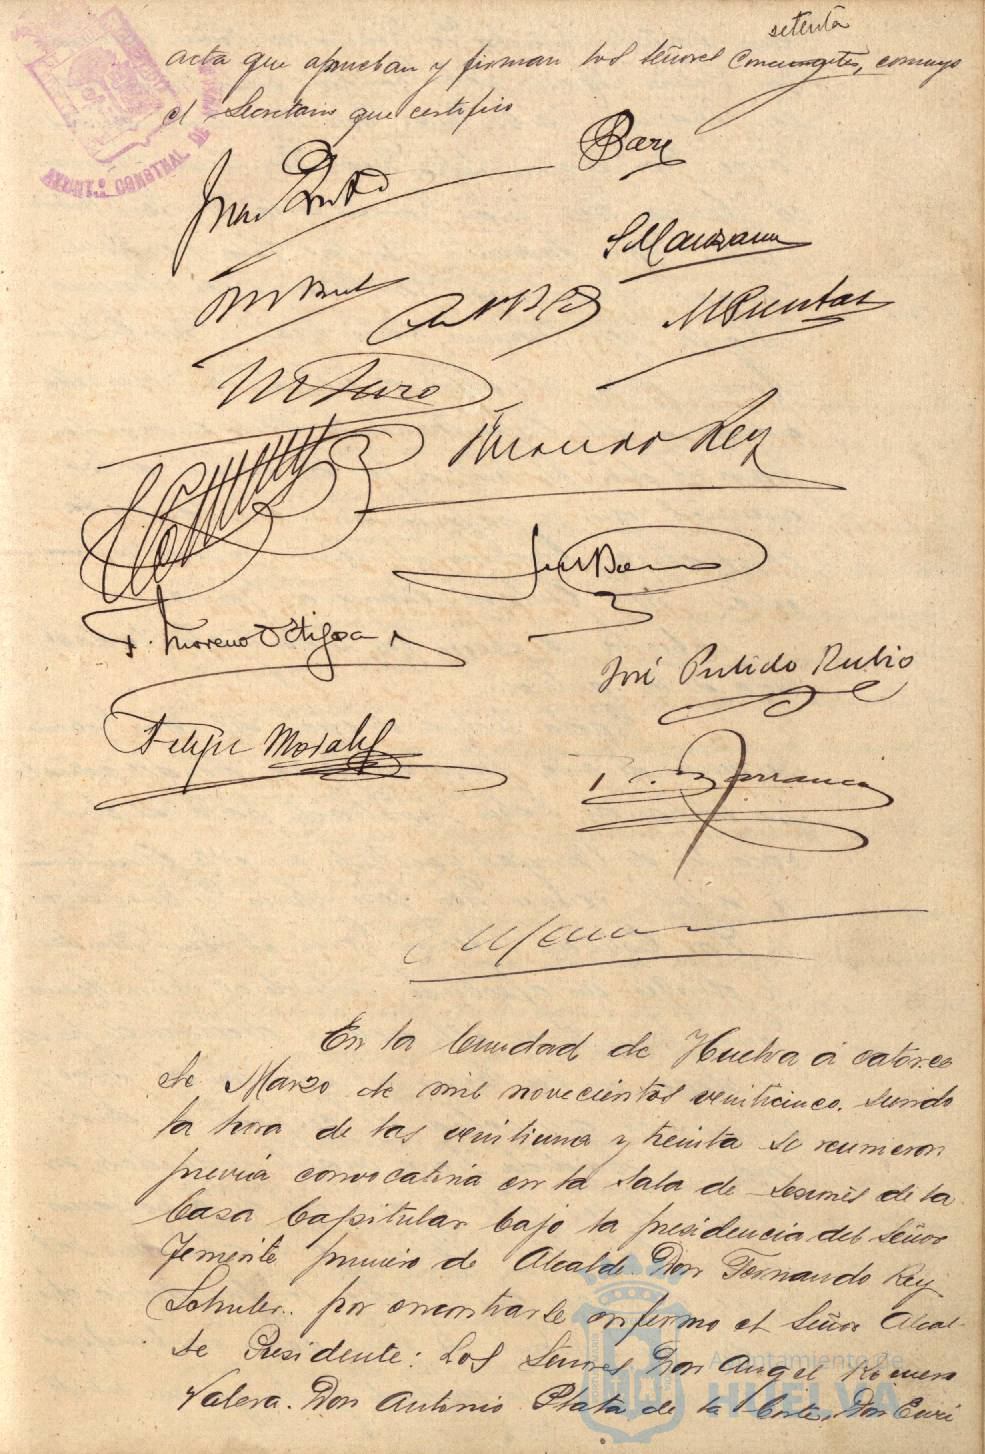 setenta
acta que aprueban y firman los señores Concurrentes, conmigo
el Secretario que certifico
AYUNT.º CONSTNAL DE
Bare
S Manzano
M Puntas
Fernando Rey
F. Moreno Ortigosa
José Pulido Rubio
Felipe Morales
En la Ciudad de Huelva á catorce
de Marzo de mil novecientos veinticinco. siendo
la hora de las veintiuna y treinta se reunieron
previa convocatoria en la sala de sesiones de la
Casa Capitular bajo la presidencia del Señor
Teniente primero de Alcalde Don Fernando Rey
Schuler. por encontrarse enfermo el Señor Alcal-
de Presidente: Los Señores Don Angel Romero
Valera. Don Antonio Plata de la Corte, Don Enri
Ayuntamiento de
HUELVA